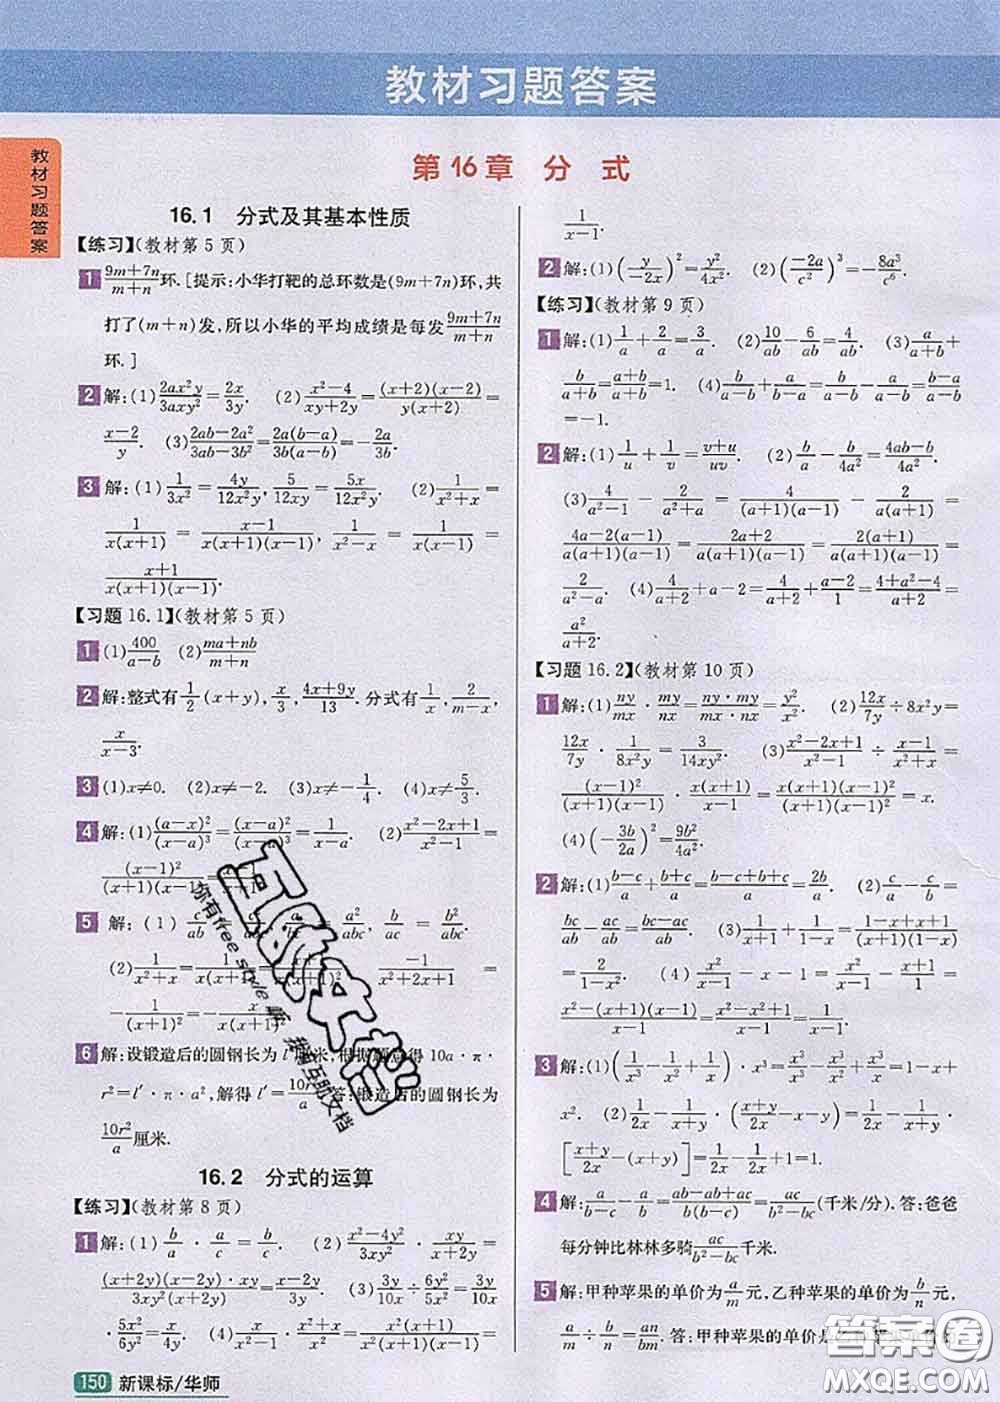 教材习题答案
教材习题答案
第16章 分 式
16.1 分式及其基本性质
【练习】(教材第5页)
1 (9m+7n)/(m+n)环.[提示:小华打靶的总环数是(9m+7n)环,共
打了(m+n)发,所以小华的平均成绩是每发(9m+7n)/(m+n)
环.]
2 解:(1) 2ax²y/3axy²=2x/3y. (2) (x²-4)/(xy+2y)=(x+2)(x-2)/y(x+2)=
(x-2)/y. (3) (2ab-2a²)/(3ab-3b²)=2a(b-a)/3b(a-b)=-2a/3b.
3 解:(1) 1/3x²=4y/12x²y, 5/12xy=5x/12x²y. (2) 1/(x²+x)=
1/x(x+1)=(x-1)/x(x+1)(x-1), 1/(x²-x)=1/x(x-1)=
(x+1)/x(x+1)(x-1).
【习题16.1】(教材第5页)
1 (1) 400/(a-b) (2) (ma+nb)/(m+n)
2 解:整式有1/2(x+y), x/3, (4x+9y)/13. 分式有1/x, 2/(m-x),
x/(x-3).
3 (1)x≠0. (2)x≠-2. (3)x≠-1/4. (4)x≠5/3.
4 解:(1) (a-x)²/(x-a)³=(x-a)²/(x-a)³=1/(x-a). (2) (x²-2x+1)/(x²-1)=
(x-1)²/(x+1)(x-1)
5 解:(1) c/ab a²/abc, b/ac=b²/abc.
(2) 1/(x²+x)=1/x(x+1) -1/(x²+2x+1)=
-1/(x+1)²=-x/x(x+1)².
6 解:设锻造后的圆钢长为l′厘米,根据题意得10a·π·
r²=l′·π·a²,解得l′=10r²/a.答:锻造后的圆钢长为
10r²/a厘米.
16.2 分式的运算
【练习】(教材第8页)
1 解:(1) a/a·b/a=b/a. (2) (x²-4y²)/3xy²·xy/(x+2y)=
(x+2y)(x-2y)·xy/3xy²(x+2y)=(x-2y)/3y. (3) 3y/10x÷6y²/5x²=3y/10x
·5x²/6y²=x/4y. (4) x/(x²-1)·(x²+x)/x²=x²(x+1)/x²(x+1)(x-1)=
150 新课标/华师
1/(x-1).
2 解:(1) (y/-2x)²=y²/4x². (2) (-2a²/c²)³=-8a³/c⁶.
【练习】(教材第9页)
1 解:(1) 1/a+2/a=3/a. (2) 10/ab-6/ab=4/ab. (3) a/(a+b)+
b/(a+b)=(a+b)/(a+b)=1. (4) b/(a-b)+a/(b-a)=b/(a-b)-a/(a-b)=(b-a)/(a-b)=
-1.
2 解:(1) 1/u+1/v=(v+u)/uv. (2) b/a-b/4a²=(4ab-b)/4a².
(3) 4/(a²-1)-2/(a²-a)=4/(a+1)(a-1)-2/a(a-1)=
(4a-2(a-1))/a(a+1)(a-1)=(2a+2)/a(a+1)(a-1)=2(a+1)/a(a+1)(a-1)=
2/(a²-a). (4) 4/(a+2)+a-2=4/(a+2)+(a-2)/1=(4+a²-4)/(a+2)=
a²/(a+2).
【习题16.2】(教材第10页)
1 解:(1) ny/mx·my/nx=ny·my/mx·nx=y²/x². (2) 12x/7y÷8x²y=
12x/7y·1/8x²y=3/14xy². (3) (x²-2x+1)/(x²-1)÷(x-1)/(x²+x)=
(x-1)²/(x+1)(x-1)·x(x+1)/(x-1)=x(x+1)(x-1)²/(x+1)(x-1)²=x.
(4) (-3b/2a)²=9b²/4a².
2 解:(1) (b-c)/a+(b+c)/a=(b-c+b+c)/a=2b/a. (2) a/bc·
(3) 1/(x+1)+1/(1-x)=(1-x+x+1)/(x+1)(1-x)=
2/(1-x²). (4) x²/(x-1)-x-1=x²/(x-1)-(x+1)/1=
(x²-(x+1)(x-1))/(x-1)=(x²-x²+1)/(x-1)=1/(x-1).
3 解:(1)
x². (2) 1/2x-1/(x+y)·((x+y)/2x-x-y)=1/2x-1/(x+y)·
[(x+y)/2x-(x+y)]=1/2x-1/2x+1=1.
4 解:a/(b-c)-a/b=(ab-ab+ac)/b(b-c)=ac/(b²-bc)(千米/分).答:爸爸
每分钟比林林多骑ac/(b²-bc)千米.
5 解:甲种苹果的单价为a/m元,乙种苹果的单价为b/n元,
a/m÷b/n=an/bm. 答:甲种苹果的单价是
你有free style嘛
我有互助文档
答案圈
MXQE.COM